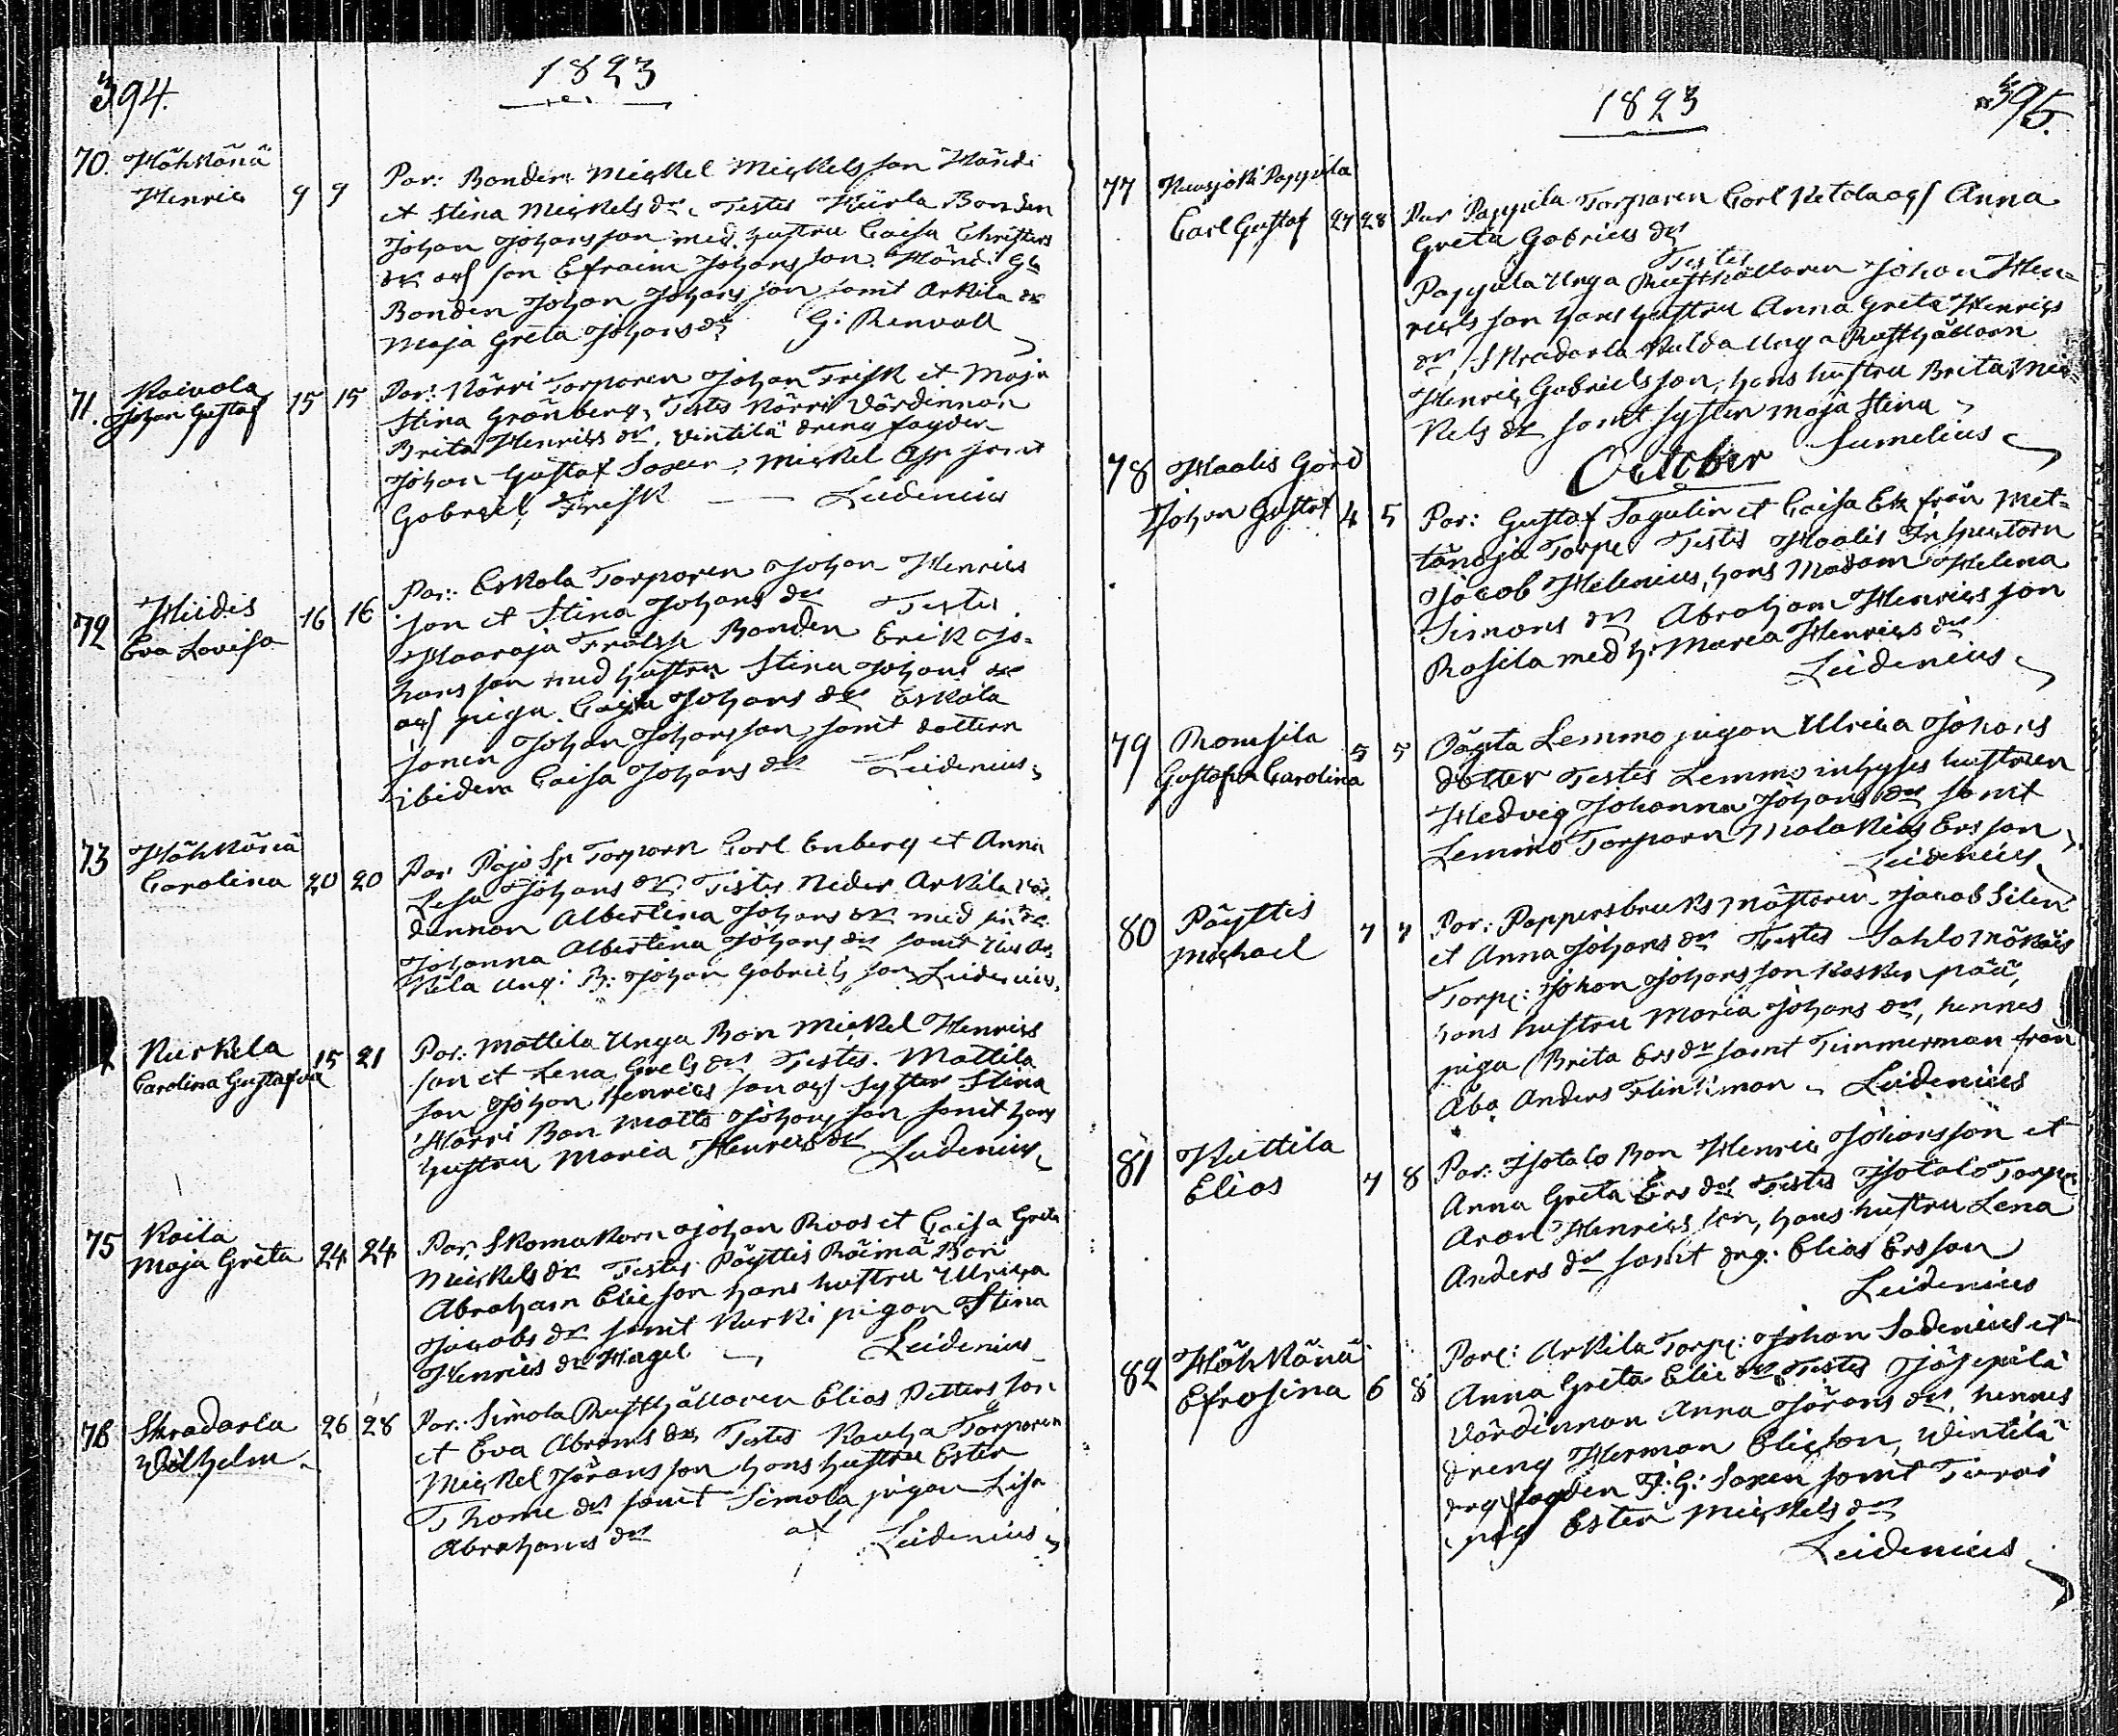 394.
1823
70. Höhkönä
Henric 9 9
Par: Bonden Michel Michels son Händi
et Stina Michels dr. Testes Kiirla Bonden
Johan Johansson med hustru Caisa Christers
dr och son Efraim Johans son. Händi Gl.
Bonden Johan Johans son samt Arkila dr
Maja Greta Johans dr G: Renvall
71. Raivola
Johan Gustaf 15 15
Par: Körri Torparen Johan Frisk et Maja
Stina Grönberg, Testes Körri Värdinnan
Brita Henrics dr, Vintilä dreng fogden
Johan Gustaf Saxen, Michel Asp samt
Gabriel Frisk Leidenius
72 Hiidis
Eva Lovisa 16 16
Par: Eskola Torparen Johan Henrics
son et Stina Johans dr Testes
Haaroja Frälse Bonden Erik Jo-
hans son med hustru Stina Johans dr
och piga Caisa Johans dr Eskola
sonen Johan Johansson, samt dottern
ibidem Caisa Johans dr Leidenius
73 Höhkönä
Carolina 20 20
Par Pajo Sp Torparn Carl Enberg et Anna
Lisa Johans dr: Testes Neder Arkila Vär-
dinnan Albertina Johans dr med sin dr
Johanna Albertina Johans dr samt Ar-
kila ung: B: Johan Gabriels son Leidenius
Kurkela
Carolina Gustafva 15 21
Par: Mattila Unga Bon Michel Henrics
son et Lena Grels dr Testes. Mattila
son Johan Henrics son och Syster Stina
Härri Bon Matts Johans son samt hans
hustru Maria Henrics dr Leidenius
75 Raila
Maja Greta 24 24
Par, Skomakarn Johan Roos et Caisa Greta
Michels dr Testes Pöyttis Räimä Bon
Abraham Elie son hans hustru Ulrica
Jacobs dr samt Kurki pigan Stina
Henrics dr Hagel Leidenius
76 Skradarla
Wilhelm 26 28
Par: Simola Rusthållaren Elias Petters son
et Eva Abrams dr, Testes Torparen
Michel Jöransson hans hustru Ester
Thome dr samt Simola pigan Lisa
Abrahams dr Leidenius
1823
395.
77 Pappila
Carl Gustaf 27 28
Par Pappila Torparen Carl Ketola och Anna
Greta Gabriels dr
Testes
Pappula Unga Rusthållaren Johan Hen-
rics son hans hustru Anna Greta Henrics
dr, Skradarla Unga Rusthållarn
Henric Gabrielsson, hans hustru Brita Mic-
kels dr samt syster Maja Stina
Sumelius
October
78 Haalis Gård
Johan Gustaf 4 5
Par: Gustaf Sagulin et Caisa Ek från Met-
tänoja Torp Testes Haalis Inspectorn
Jacob Helenius, hans Madam Helena
Simons dr Abraham Henrics son
Rosila med h: Maria Henrics dr
Leidenius
79 Romsila
Gustafva Carolina 5 5
Oägta Lemmo pigan Ulrica Johans
dotter Testes Lemmo inhyses hustrun
Hedvig Johanna Johans dr samt
Lemmo Torparn Malakias Ersson
Leidenius
80 Pöyttis
Michael 7 7
Par: Pappersbruks mästaren Jacob Silen
et Anna Johans dr Testes
Torp: Johan Johansson Koskenpää,
hans hustru Maria Johans dr, hennes
piga Brita Ers dr samt Timmerman från
Åbo Anders Flinkman Leidenius
81 Kuttila
Elias 7 8
Par: Isotalo Bon Henric Johansson et
Anna Greta Ers dr Testes Isotalo Torp:
Aron Henrics son, hans hustru Lena
Anders dr samt drg: Elias Ersson
Leidenius
82 Höhkönä
Efrosina 6 8
Par: Arkila Torp: Johan Sadenius et
Anna Greta Elie dr Testes Jösepilä
Värdinnan Anna Görans dr, hennes
dreng Herman Elieson, Vintilä
drg fogden J: G: Saxen samt
pig Ester Michels dr
Leidenius